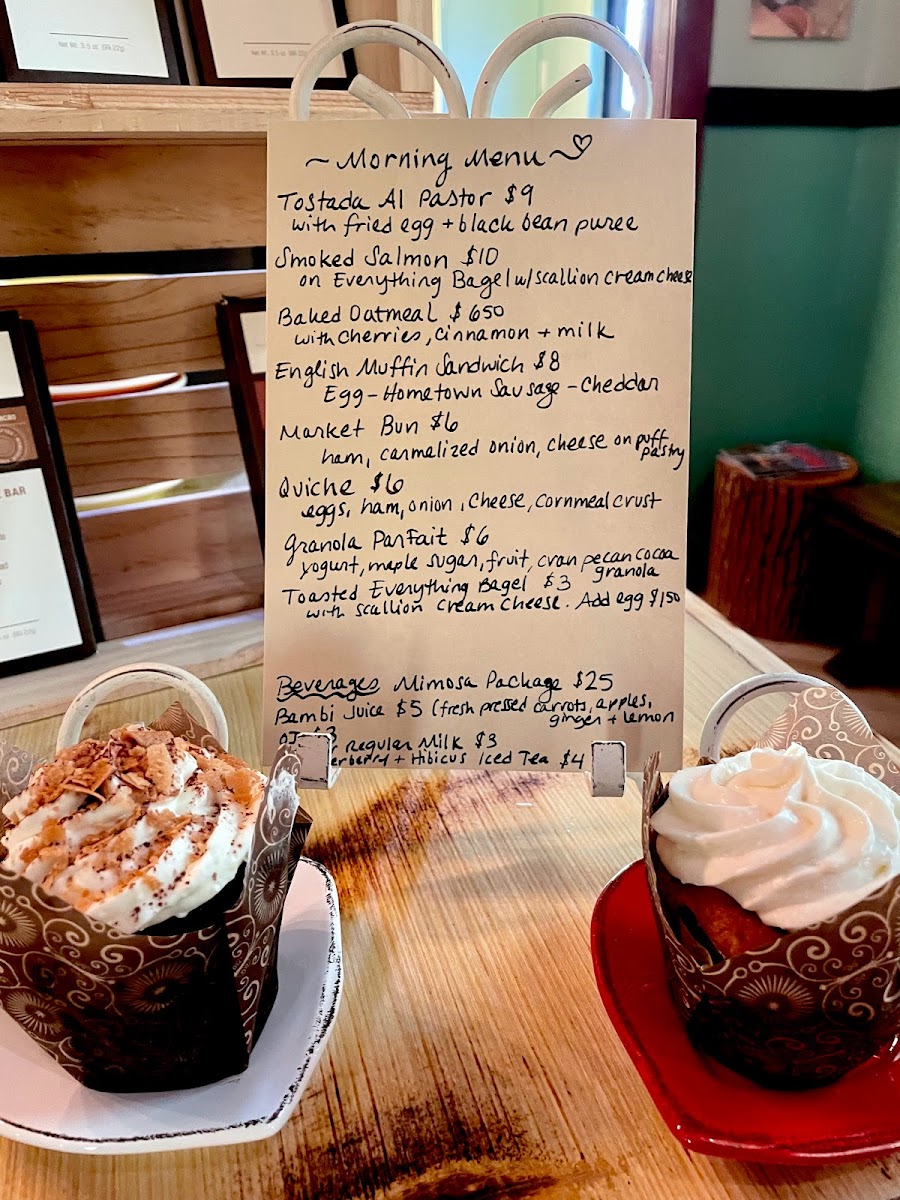 Net Wt. 3.5 oz (99.22g)
Net Wt. 3.5 oz (99.22g)
~ Morning Menu ~♡
Tostada Al Pastor $9
with fried egg + black bean puree
Smoked Salmon $10
on Everything Bagel w/scallion cream cheese
Baked Oatmeal $650
with cherries, cinnamon + milk
English Muffin Sandwich $8
Egg - Hometown Sausage - Cheddar
Market Bun $6
ham, carmalized onion, cheese on puff
pastry
Quiche $6
eggs, ham, onion, cheese, cornmeal crust
Granola Parfait $6
yogurt, maple sugar, fruit, cran pecan cocoa
granola
Toasted Everything Bagel $3
with scallion cream cheese. Add egg $150
Beverages Mimosa Package $25
Bambi Juice $5 (fresh pressed carrots, apples,
ginger + lemon
regular Milk $3
+ Hibicus Iced Tea $4
BAR